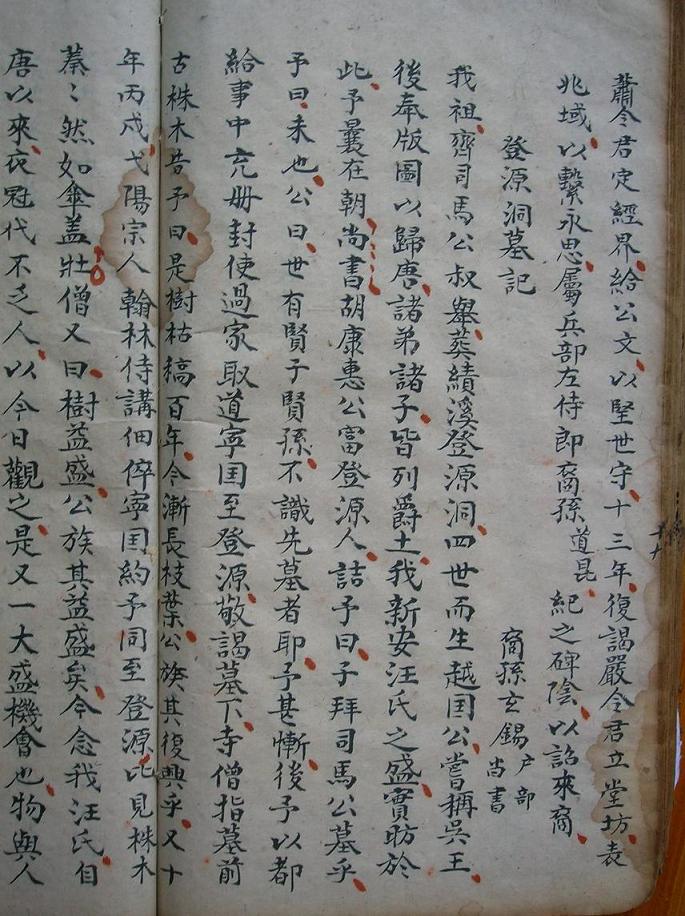 蕭令君定經界給公文以堅世守十三年復謁嚴令君立堂坊表
兆域以繫永思屬兵部左侍郎裔孫道昆紀之碑陰以詔來裔
登源洞墓記
裔孫玄錫戶部尚書
我祖齊司馬公叔舉葬績溪登源洞四世而生越国公嘗稱吳王
後奉版圖以歸唐諸弟諸子皆列爵土我新安汪氏之盛實昉於
此予曩在朝尚書胡康惠公富登源人詰予曰子拜司馬公墓乎
予曰未也公曰世有賢子賢孫不識先墓者耶予甚慚後予以都
給事中充册封使過家取道寧国至登源敬謁墓下寺僧指墓前
古株木告予曰是樹枯稿百年今漸長枝葉公族其復興乎又十
年丙戍弋陽宗人翰林侍講佃倅寧国約予同至登源比見株木
蓁〻然如傘盖壯僧又曰樹益盛公族其益盛矣今念我汪氏自
唐以來衣冠代不乏人以今日觀之是又一大盛機會也物與人